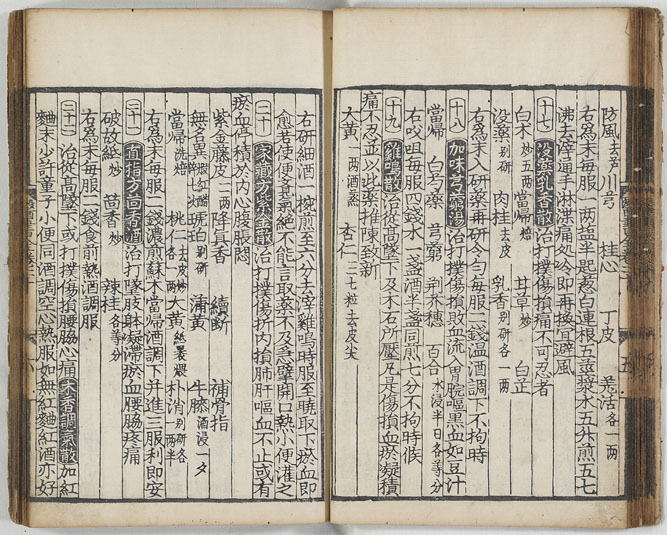 防風去芦 川芎 桂心 丁皮 羌活各一兩
右爲末每服一兩塩半匙葱白連根五莖漿水五升煎五七
沸去滓通手淋渫痛処冷即再換宜避風
十七 没藥乳香散 治打撲傷損痛不可忍者
白朮炒五兩 當帰焙 甘草炒 白芷
没藥別研 肉桂去皮 乳香別研各一兩
右爲末入研藥再研令勻每服二錢溫酒調下不拘時
十八 加味芎䓖湯 治打撲傷損敗血流入胃脘嘔黒血如豆汁
當帰 白芍藥 芎藭 荆芥穗 百合水浸半日各等分
右㕮咀每服四錢水一盞酒半盞同煎七分不拘時候
十九 雞鳴散 治從高墜下及木石所壓凡是傷損血瘀凝積
痛不忍並以此藥推陳致新
大黄一兩酒蒸 杏仁三七粒去皮尖
右研細酒一椀煎至六分去滓雞鳴時服至曉取下瘀血即
愈若便覺氣絶不能言取藥不及急擘開口熱小便灌之
二十 家藏方紫金散 治打撲傷折内損肺肝嘔血不止或有
瘀血停積於内心腹脹悶
紫金藤皮二兩 降真香 續断 補骨指
無名異煅紅醋淬七次 琥珀別研 蒲黄 牛膝酒浸一夕
當帰洗焙 桃仁去皮炒各一兩 大黄紙裹煨 朴消別研各一兩半
右爲末每服二錢濃煎蘇木當帰酒調下并進三服利即安
二十一 直指方茴香酒 治打墜肢躰凝滯瘀血腰脇疼痛
破故紙炒 茴香炒 辣桂各等分
右爲末每服二錢食前熱酒調服
二十二 治從高墜下或打撲傷損腰脇心痛 木香調氣散 加紅
麯末少許童子小便同酒調空心熱服如無紅麯紅酒亦好